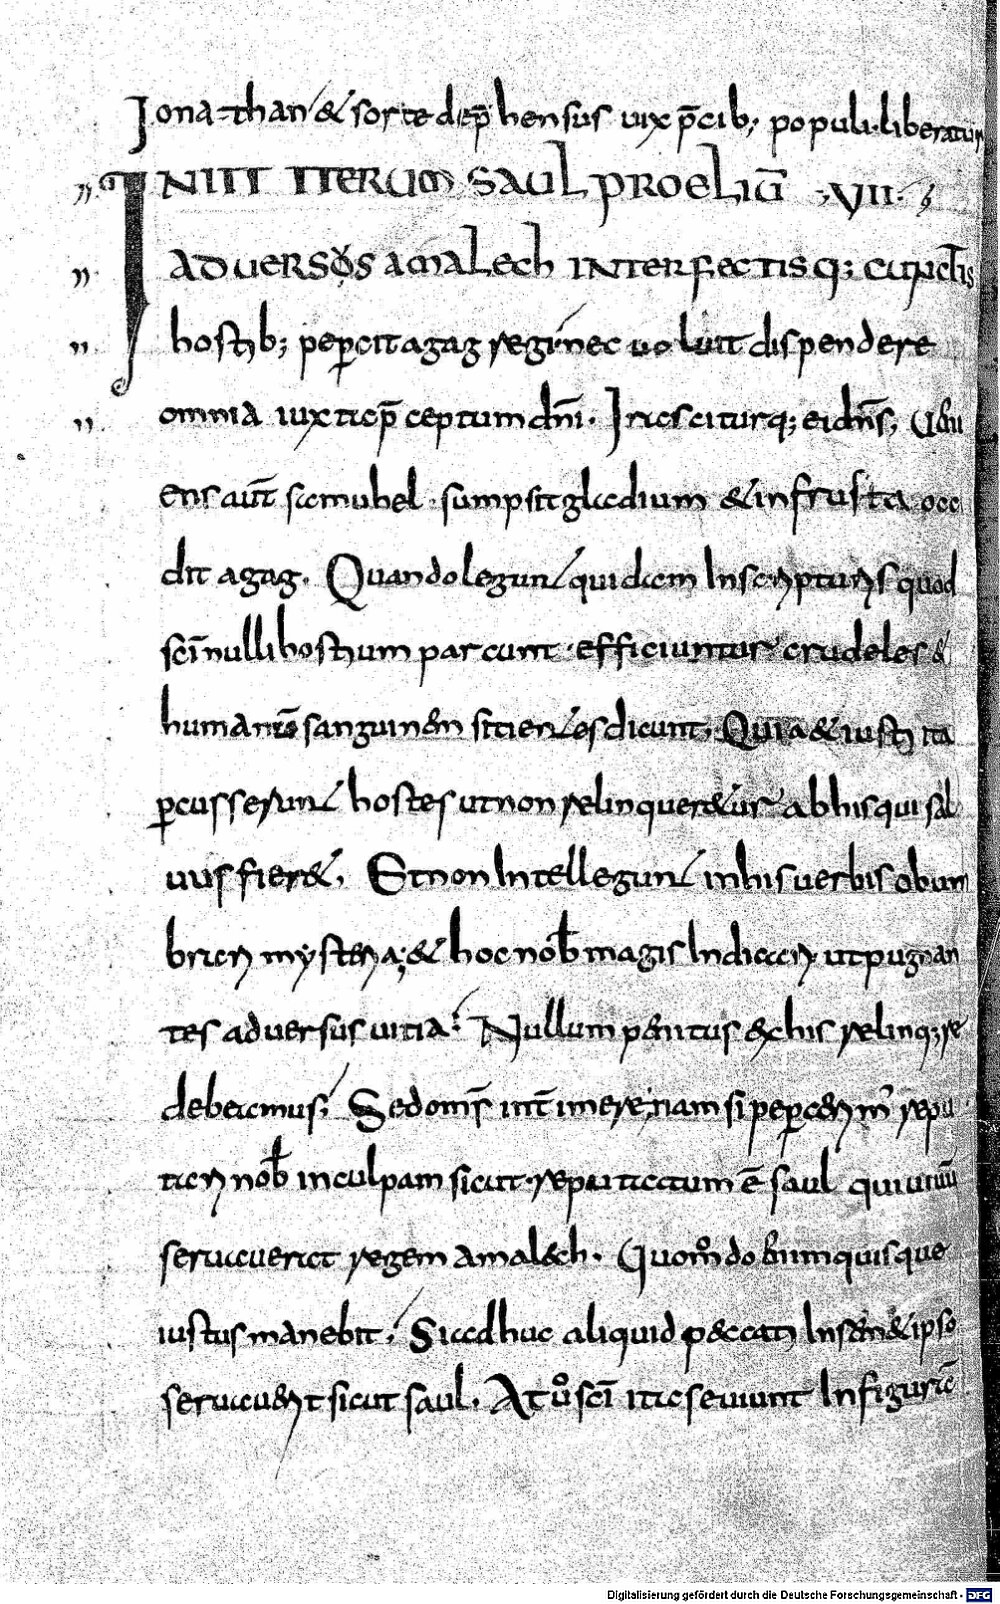 Jonathan & sorte dep̄hensus uix p̄cib; populi·liberatur
INIIT ITERUM SAUL PROELIŪ ·VII·
ADUERSOS AMALECH INTERFECTISQ; CUNCTIS
hostib; pepercit agag regi nec uoluit dispendere
omnia iuxta p̄ceptum dn̄i. Irasciturq; ei dn̄s, Veni
ens aūt samuhel · sumpsit gladium & in frusta occi
dit agag. Quando legunt quidam In scripturis quod
sc̄i nulli hostium parcunt · efficiuntur crudeles &
humanū sanguinem sitientes dicunt, Quia & iusti ita
percusserunt hostes ut non relinqueretur ab his qui sal
uus fieret. Et non Intellegunt in his uerbis obum
brari mysteria; & hoc nob̄ magis Indicari ut pugnan
tes aduersus uitia. Nullum penitus ex his relinq;re
debeamus; Sed om̄s int̄imere; nam si pepercerim' repu
tari nob̄ in culpam sicut reputatum ē saul qui uiuū
seruauerat regem amalech. Quomodo enim quisque
iustus manebit, Si adhuc aliquid peccati In semet ipso
seruauerit sicut saul. At ů sc̄i ita seuiunt In figurā